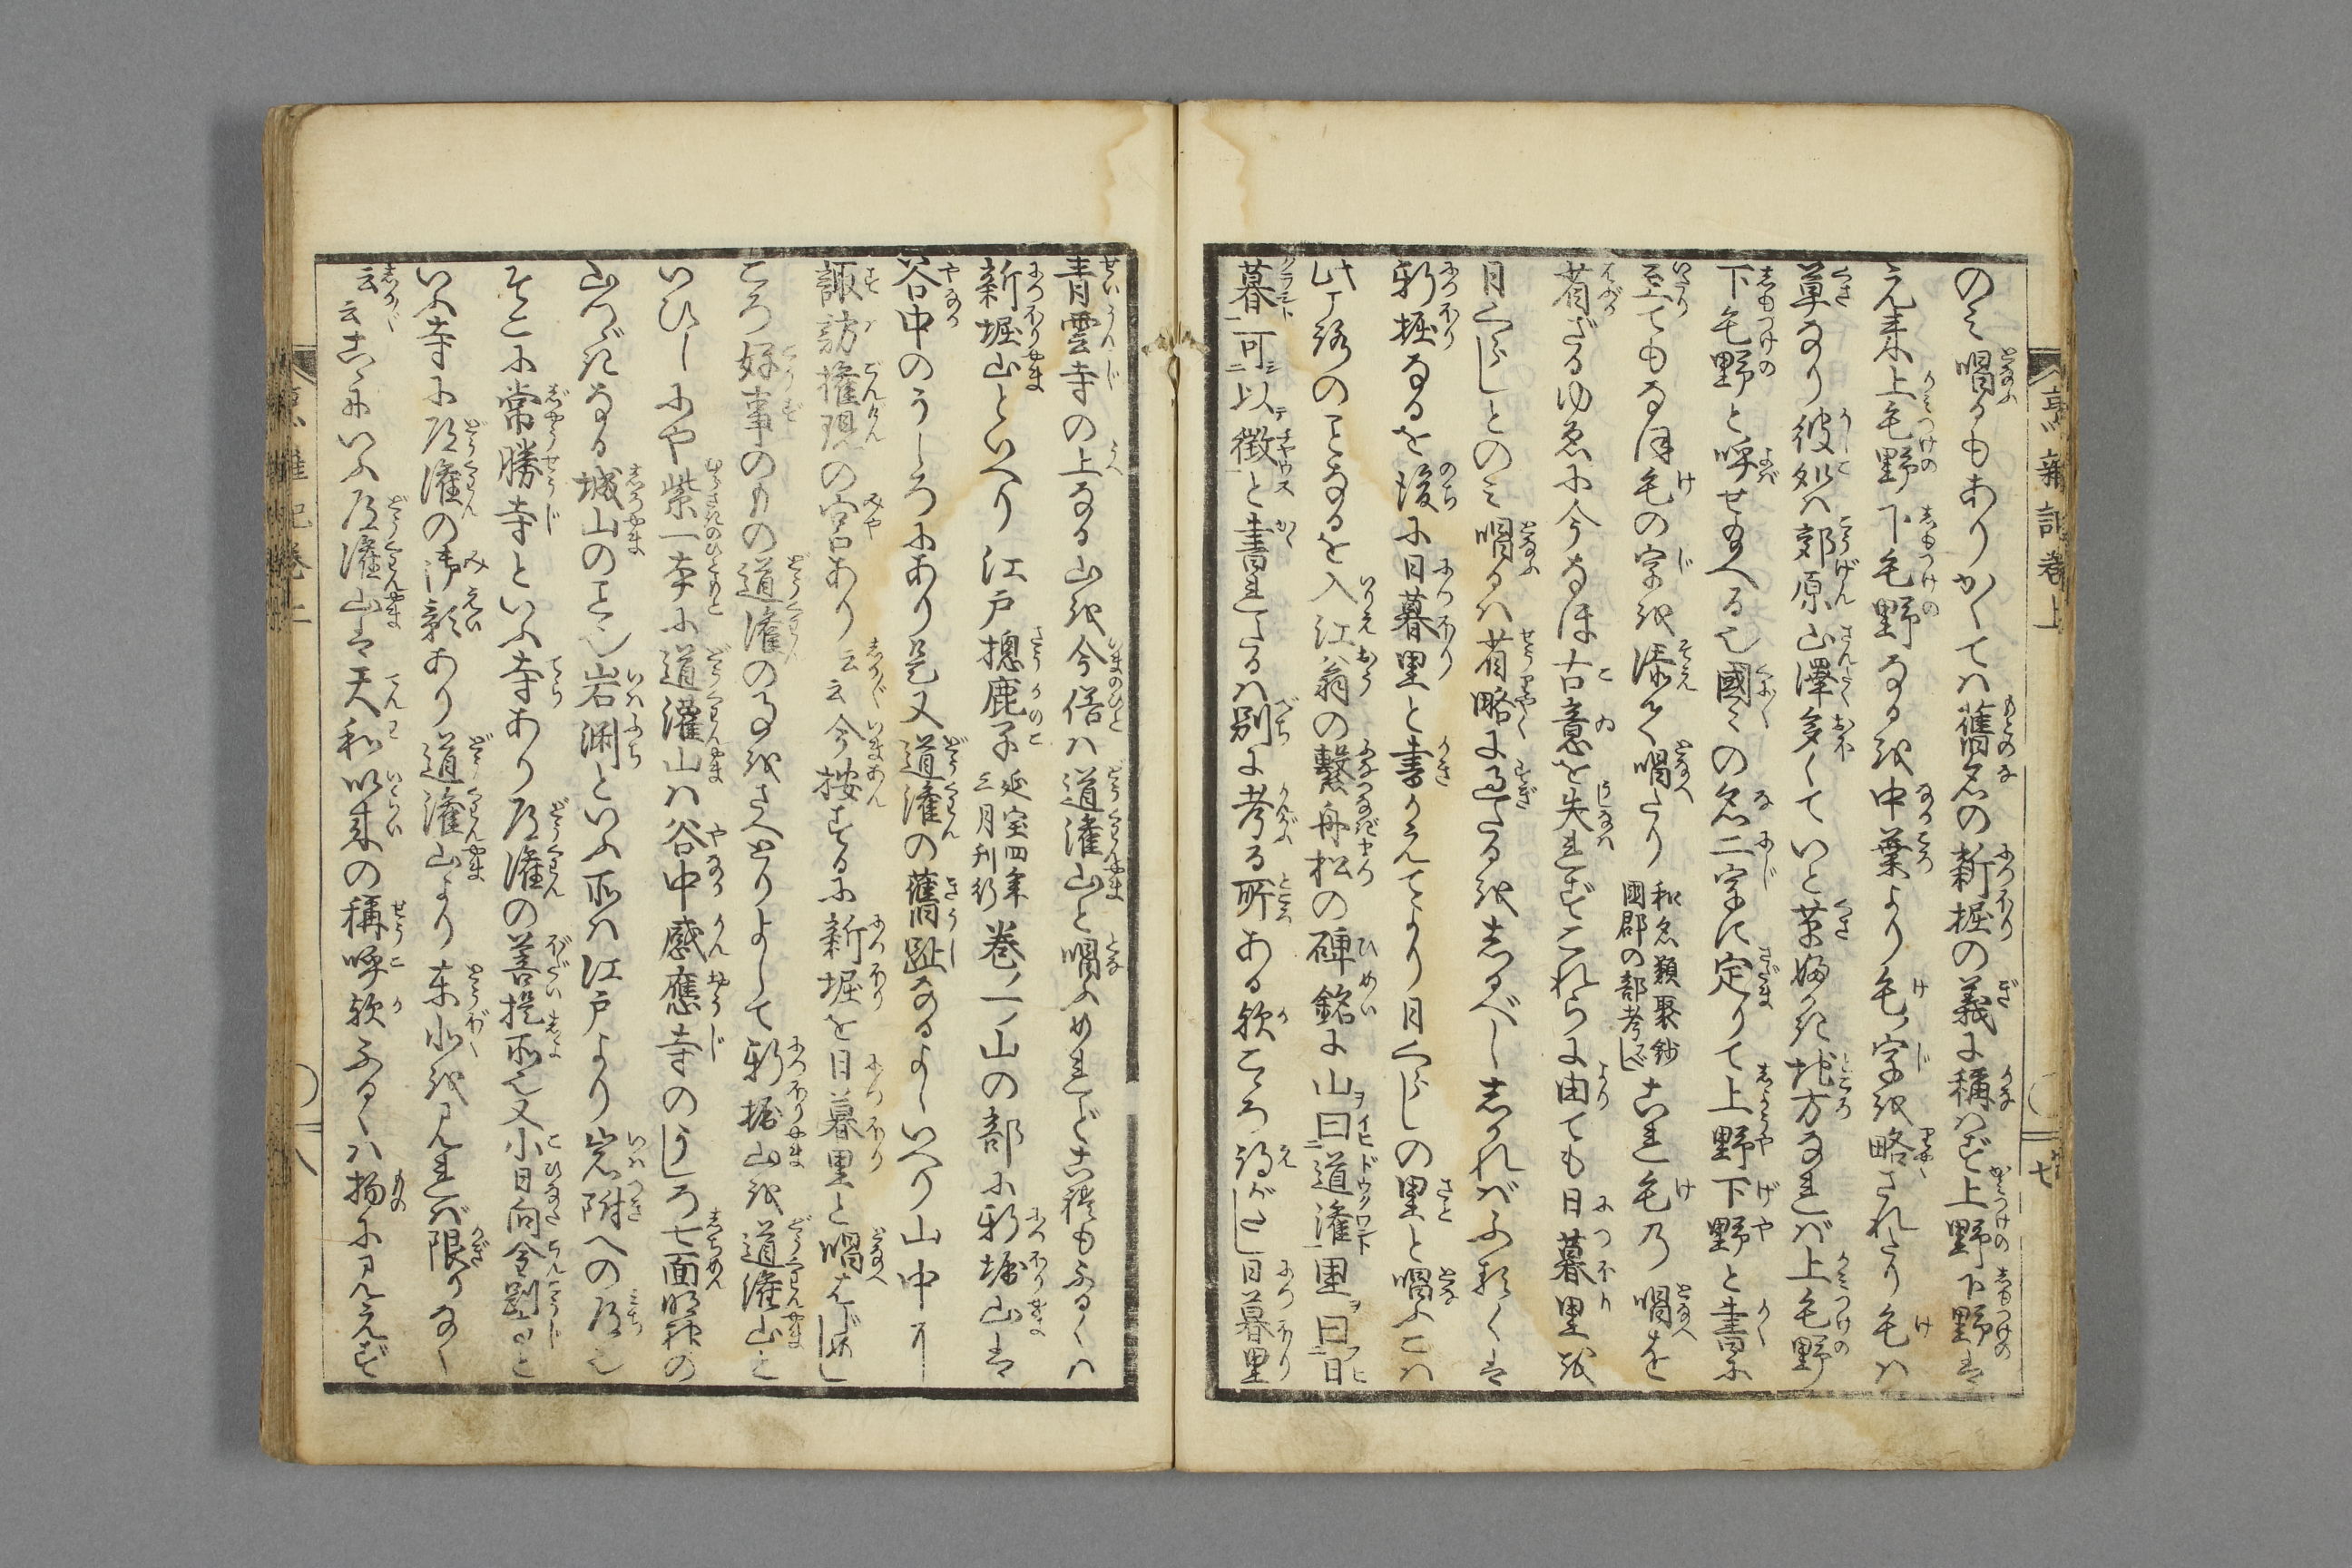 のミ唱るもありかくてハ舊名の新掘の義に稱ハず上野下野は
元来上毛野下毛野なるを中葉より毛ノ字を略されたり毛ハ
草なり彼処ハ郊原山澤多くていと草好き地方なれバ上毛野
下毛野と呼せ給へる也國々の名二字に定りて上野下野と書に
至てもなほ毛の字を添て唱たり 和名類聚鈔 國郡の部考べし 古れ毛の唱を
省ざるゆゑに今なほ古意を失れずこれらに由ても日暮里を
日ぐらしとのミ唱るハ省略に過たるをしるべししかれバふるくは
新掘なるを後に日暮里と書かえてより日ぐらしの里と唱ふこハ
此ノ地のことなるを入江翁の繋舟松の碑銘に山曰道灌里曰日
暮可以徴と書れたるハ別に考る所ある歟こゝろ得がたし日暮里
青雲寺の上なる山を今俗ハ道灌山と唱ふめれど古れもふるくハ
新堀山といへり江戸摠鹿子 延宝四年 三月刊行 巻ノ一山の部に新堀山は
谷中のうしろにあり是又道灌の舊趾なるよしいへり山中に
諏訪権現の宮あり云云今按ずるに新堀を日暮里と唱はじめし
ころ好事のものの道灌の事をさへとりよして新堀山を道灌山と
いひしにや紫一本に道灌山ハ谷中感應寺のうしろ七面明神の
山つゞきなる城山のこと也岩渕といふ所ハ江戸より岩附への道也
そこに常勝寺といふ寺あり道灌の菩提所也又小日向金剛寺と
いふ寺に道灌の御影あり道灌山より東北を見れバ限りなく
云云古ゝにいふ道灌山は天和以来の稱呼歟ふるくハ物に見えず